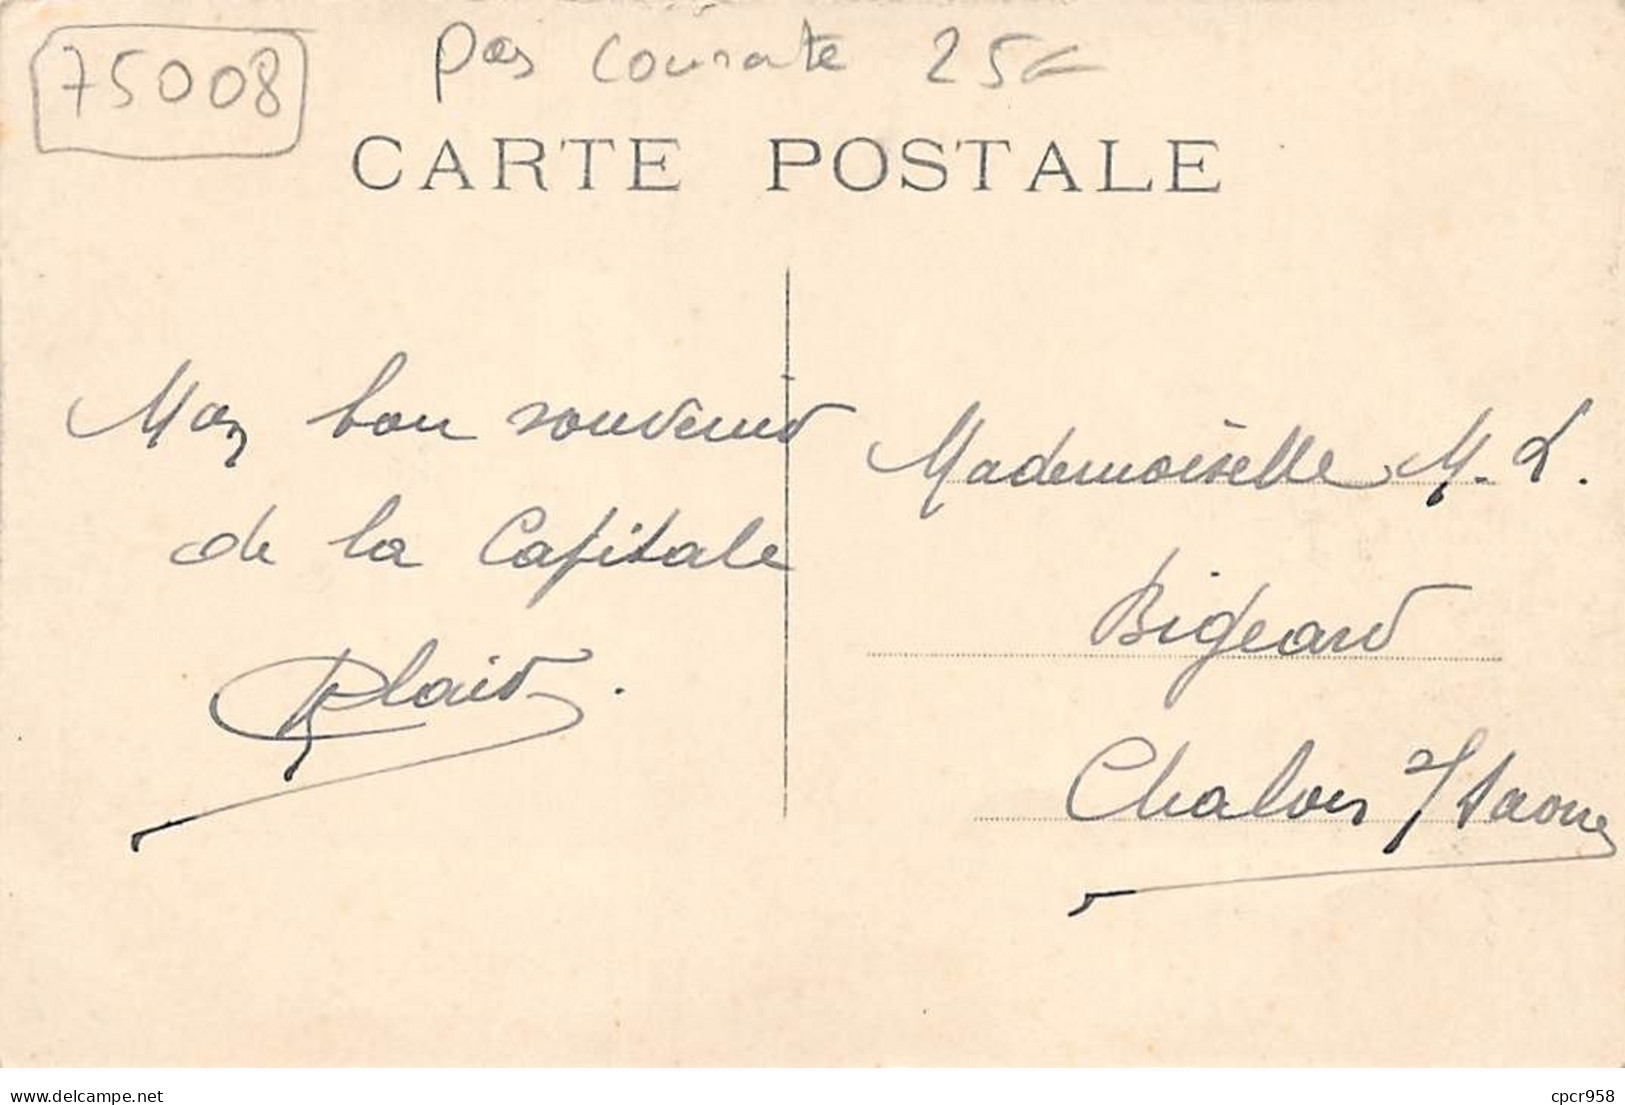 75008
pas courante 25€
CARTE POSTALE
Mon bon souvenir
de la Capitale
Mademoiselle M. L.
Bigeard
Chalon s/ Saone
delcampe.net
cpcr958